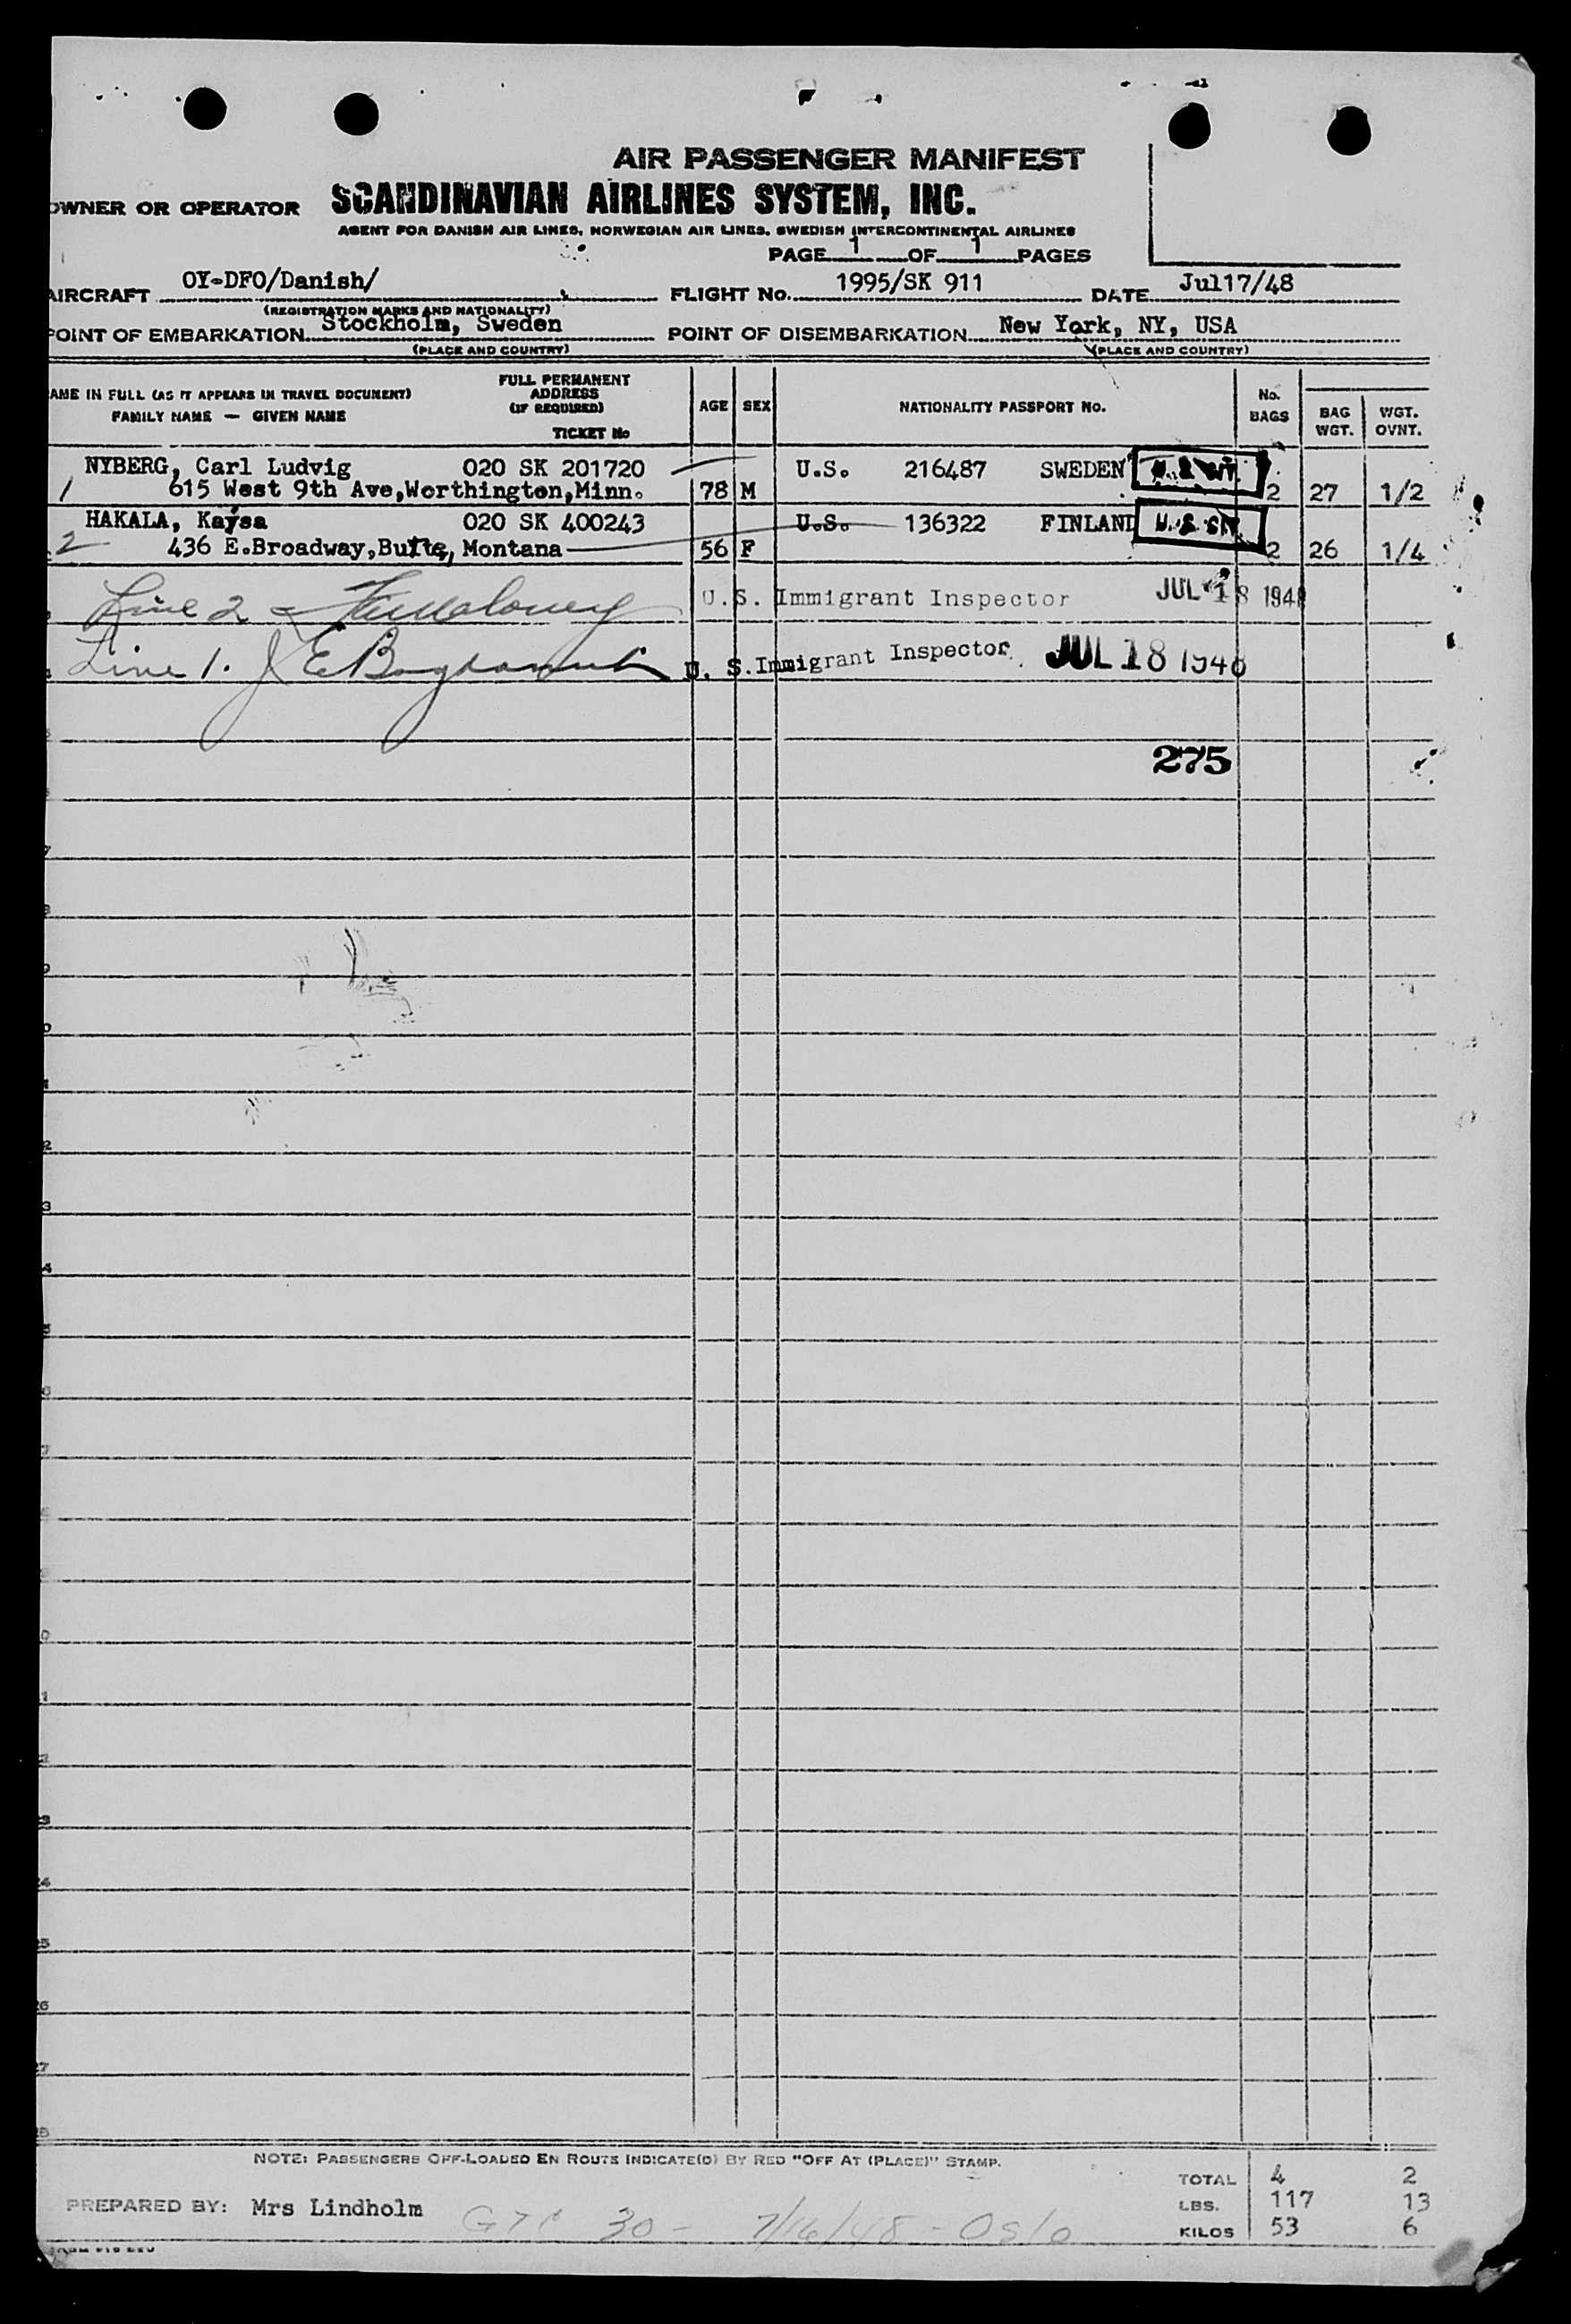 AIR PASSENGER MANIFEST
OWNER OR OPERATOR SCANDINAVIAN AIRLINES SYSTEM, INC.
AGENT FOR DANISH AIR LINES, NORWEGIAN AIR LINES, SWEDISH INTERCONTINENTAL AIRLINES
PAGE 1 OF 1 PAGES
AIRCRAFT OY-DFO/Danish/ FLIGHT No. 1995/SK 911 DATE Jul17/48
(REGISTRATION MARKS AND NATIONALITY)
POINT OF EMBARKATION Stockholm, Sweden POINT OF DISEMBARKATION New York, NY, USA
(PLACE AND COUNTRY) (PLACE AND COUNTRY)
NAME IN FULL (AS IT APPEARS IN TRAVEL DOCUMENT) FULL PERMANENT ADDRESS (IF REQUIRED)
FAMILY NAME — GIVEN NAME TICKET No AGE SEX NATIONALITY PASSPORT No. No. BAGS BAG WGT. WGT. OVNT.
NYBERG, Carl Ludvig 020 SK 201720 U.S. 216487 SWEDEN
1 615 West 9th Ave,Worthington,Minn. 78 M 2 27 1/2
HAKALA, Kaysa 020 SK 400243 U.S. 136322 FINLAND U.S. CIT.
2 436 E.Broadway,Butte, Montana 56 F 2 26 1/4
Line 2 U.S. Immigrant Inspector JUL 18 1948
Line 1. J E U. S. Immigrant Inspector JUL 18 1948
275
NOTE: PASSENGERS OFF-LOADED EN ROUTE INDICATE(D) BY RED "OFF AT (PLACE)" STAMP.
TOTAL 4 2
LBS. 117 13
KILOS 53 6
PREPARED BY: Mrs Lindholm 30 - 7/16/48 - Oslo